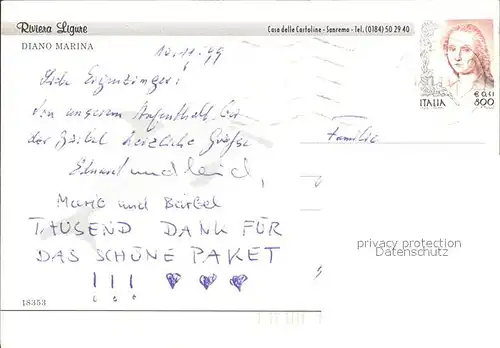 Riviera Ligure
Casa delle Cartoline - Sanremo - Tel. (0184) 50 29 40
DIANO MARINA
10.11.99
Liebe
von unserem Aufenthalt bei
der herzliche Grüße
und
Mario und Bärbel
TAUSEND DANK FÜR
DAS SCHÖNE PAKET
!!! ♥ ♥ ♥
18353
ITALIA
€ 0,41
800
Familie
privacy protection
Datenschutz